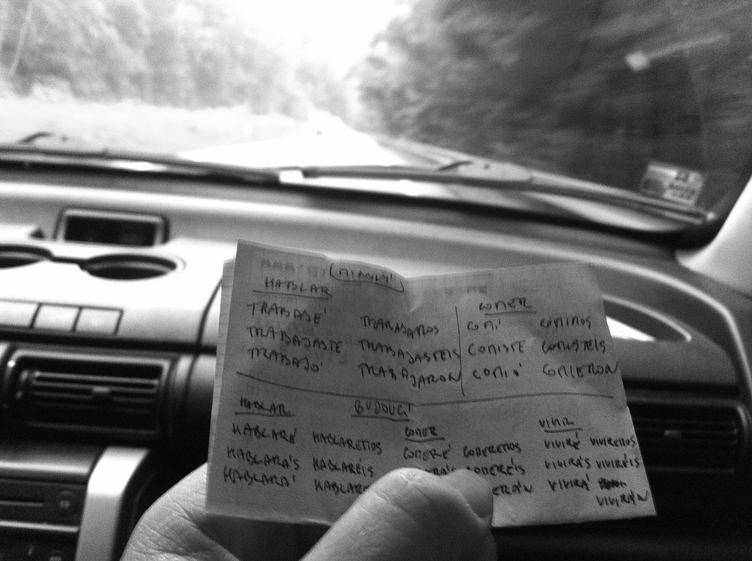 HABLAR
TRABAJÉ TRABAJAMOS
TRABAJASTE TRABAJASTEIS
TRABAJÓ TRABAJARON
COMER
COMÍ COMIMOS
COMISTE COMISTEIS
COMIÓ COMIERON
HABLAR
BUDOUCÍ
HABLARÉ HABLAREMOS
HABLARÁS HABLARÉIS
HABLARÁ
COMER
COMERÉ COMEREMOS
COMERÉIS
VIVIR
VIVIRÉ VIVIREMOS
VIVIRÁS VIVIRÉIS
VIVIRÁ
VIVIRÁN